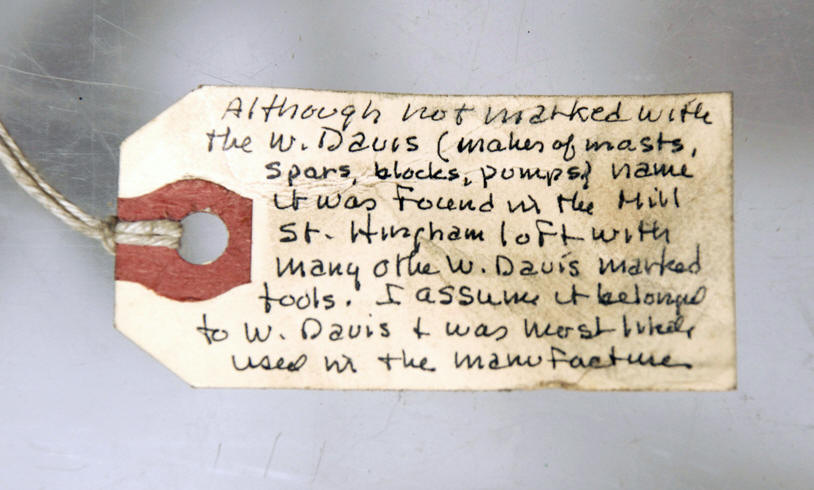 Although not marked with
the W. Davis (maker of masts,
spars, blocks, pumps) name
it was found in the Hill
St. Hingham loft with
many othe W. Davis marked
tools. I assume it belonged
to W. Davis & was most likely
used in the manufacture